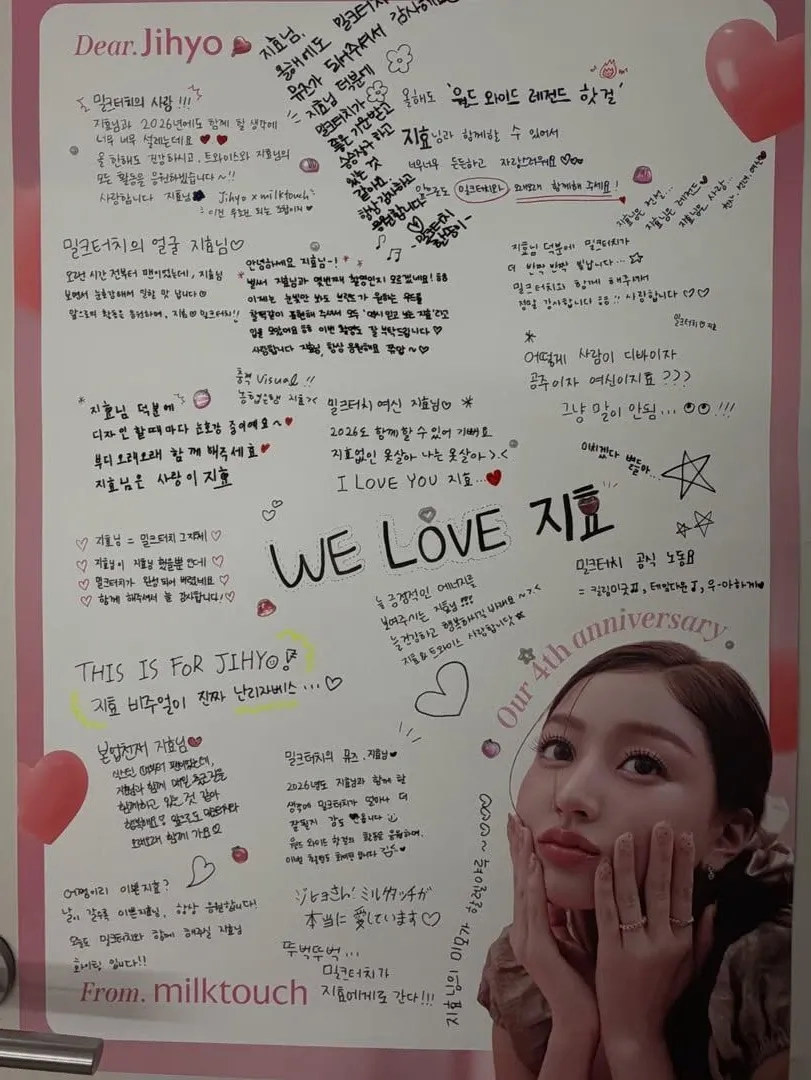 Dear. Jihyo
지효님,
밀크터치
올해에도
뮤즈가 되어주셔서 감사해요
지효님 덕분에
밀크터치가
좋은 기운받고
승승장구 하고
있는 것
같아요
항상 감사하고
응원합니다
밀크터치의 사랑 !!!
지효님과 2026년에도 함께 할 생각에
너무 너무 설레는데요
올 한해도 건강하시고, 트와이스와 지효님의
모든 활동을 응원하겠습니다~!!
사랑합니다 지효님 Jihyo x milktouch
올해도 '월드 와이드 레전드 핫걸'
지효님과 함께할 수 있어서
너무너무 든든하고 자랑스러워요
앞으로도 밀크터치와 오래오래 함께해 주세요!
지효님은 전설...
지효님은 레전드
지효님은 사랑...
밀크터치의 얼굴 지효님
오랜 시간 전부터 팬이었는데, 지효님
보면서 눈호강해서 일할 맛 납니다
안녕하세요 지효님~!
벌써 지효님과 몇번째 촬영인지 모르겠네요!
이제는 눈빛만 봐도 브랜드가 원하는 무드를
사랑합니다 지효님, 항상 응원해요
지효님 덕분에 밀크터치가
더 반짝 반짝 빛납니다...
밀크터치와 함께 해주셔서
정말 감사합니다 !! 사랑합니다
어떻게 사람이 디바이자
공주이자 여신이지효???
그냥 말이 안됨... !!!
충격 Visual !!
지효님 덕분에
디자인 할때마다 눈호강 중이에요~
부디 오래오래 함께해주세효
지효님은 사랑이 지효
밀크터치 여신 지효님
2026도 함께할 수 있어 기뻐요
지효없인 못살아 나는 못살아 >.<
I LOVE YOU 지효...
미치겠다
WE LOVE 지효
지효님 = 밀크터치 그자체
지효님이 지효님 했을뿐 인데
밀크터치가 완성 되어 버렸네요
함께 해주셔서 늘 감사합니다!
늘 긍정적인 에너지를
보여주시는 지효님!!!
늘 건강하고 행복하시길 바래요~>.<
지효&트와이스 사랑합니닷
밀크터치 공식 노동요
= 킬링미굿, 테잌다운, 우-아하게
THIS IS FOR JIHYO!
지효 비주얼이 진짜 난리자베스...
Our 4th anniversary
본업천재 지효님
지효님과 함께 매일 출근길을
함께하고 있는 것 같아
행복해요 앞으로도 밀크터치와
오래오래 함께 가요
밀크터치의 뮤즈, 지효님
2026년도 지효님과 함께 할
생각에 밀크터치가 얼마나 더
잘될지 감도 안옵니다
월드 와이드 핫걸의 활동을 응원하며,
어쩜이리 이쁜지효?
날이 갈수록 이쁜지효님, 항상 응원합니다!
오늘도 밀크터치와 함께 해주실 지효님
화이팅 입니다!!
ジヒョさん! ミルクタッチが
本当に愛しています
뚜벅뚜벅...
밀크터치가
지효에게로 간다!!!
From. milktouch